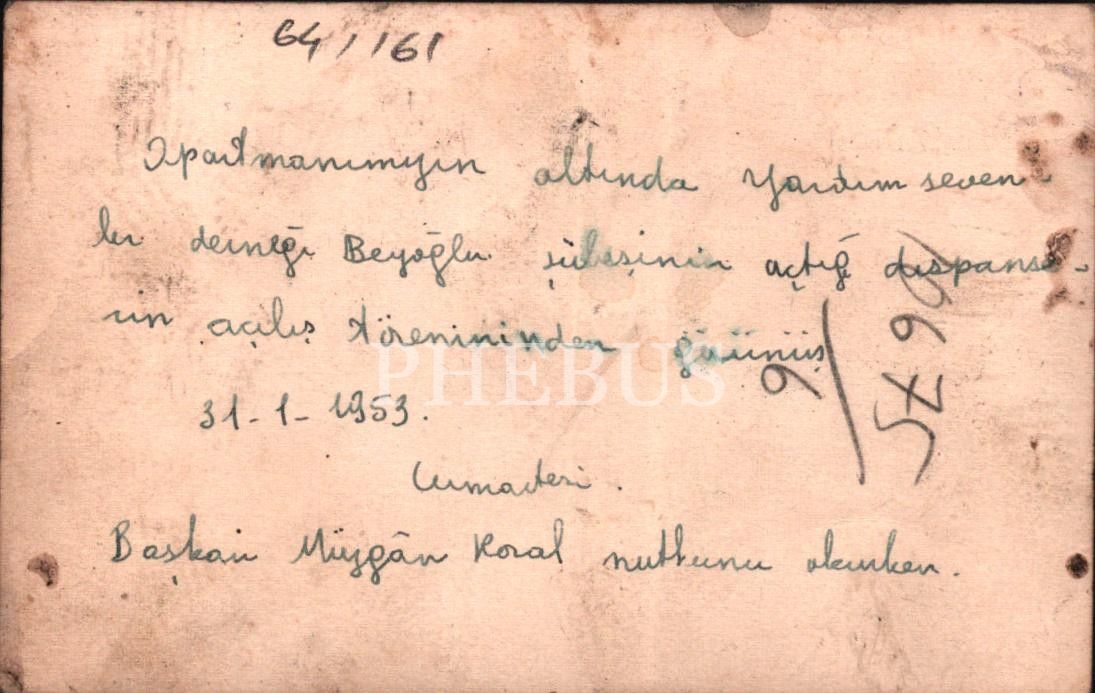 64/161
Apartmanımızın altında Yardım seven-
ler derneği Beyoğlu şübeşinin açtığı dispanse-
rin açılış törenininden görünüş
31-1-1953.
Cumartesi.
Başkan Müjgân Koral nutkunu okurken.
PHEBUS